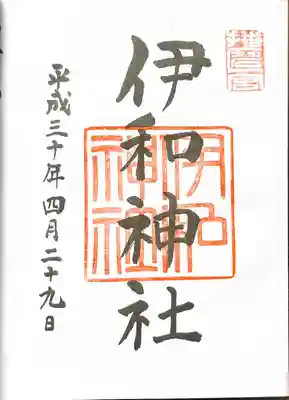 伊和神社
平成三十年四月二十九日
伊和
神社